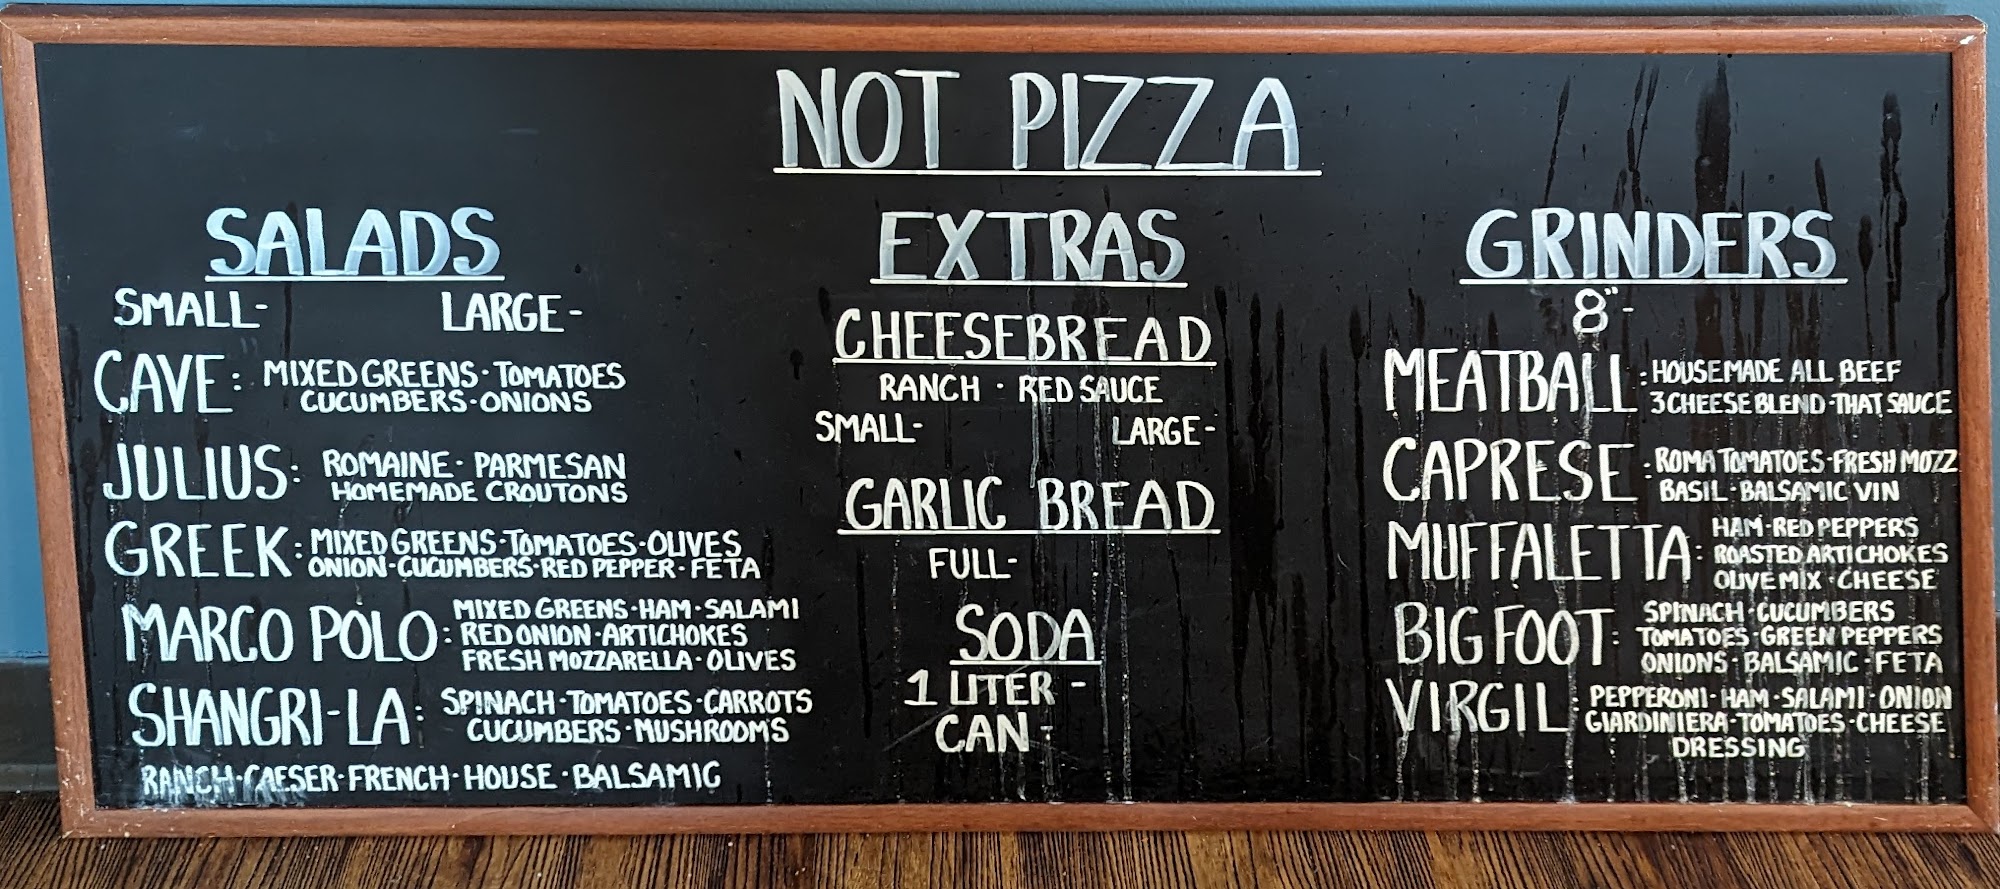 NOT PIZZA
SALADS
SMALL- LARGE-
CAVE: MIXED GREENS · TOMATOES
CUCUMBERS · ONIONS
JULIUS: ROMAINE · PARMESAN
HOMEMADE CROUTONS
GREEK: MIXED GREENS · TOMATOES · OLIVES
ONION · CUCUMBERS · RED PEPPER · FETA
MARCO POLO: MIXED GREENS · HAM · SALAMI
RED ONION · ARTICHOKES
FRESH MOZZARELLA · OLIVES
SHANGRI-LA: SPINACH · TOMATOES · CARROTS
CUCUMBERS · MUSHROOMS
RANCH · CAESER · FRENCH · HOUSE · BALSAMIC
EXTRAS
CHEESEBREAD
RANCH · RED SAUCE
SMALL- LARGE-
GARLIC BREAD
FULL-
SODA
1 LITER -
CAN -
GRINDERS
8"-
MEATBALL: HOUSEMADE ALL BEEF
3 CHEESE BLEND · THAT SAUCE
CAPRESE: ROMA TOMATOES · FRESH MOZZ
BASIL · BALSAMIC VIN
MUFFALETTA: HAM · RED PEPPERS
ROASTED ARTICHOKES
OLIVE MIX · CHEESE
BIG FOOT: SPINACH · CUCUMBERS
TOMATOES · GREEN PEPPERS
ONIONS · BALSAMIC · FETA
VIRGIL: PEPPERONI · HAM · SALAMI · ONION
GIARDINIERA · TOMATOES · CHEESE
DRESSING